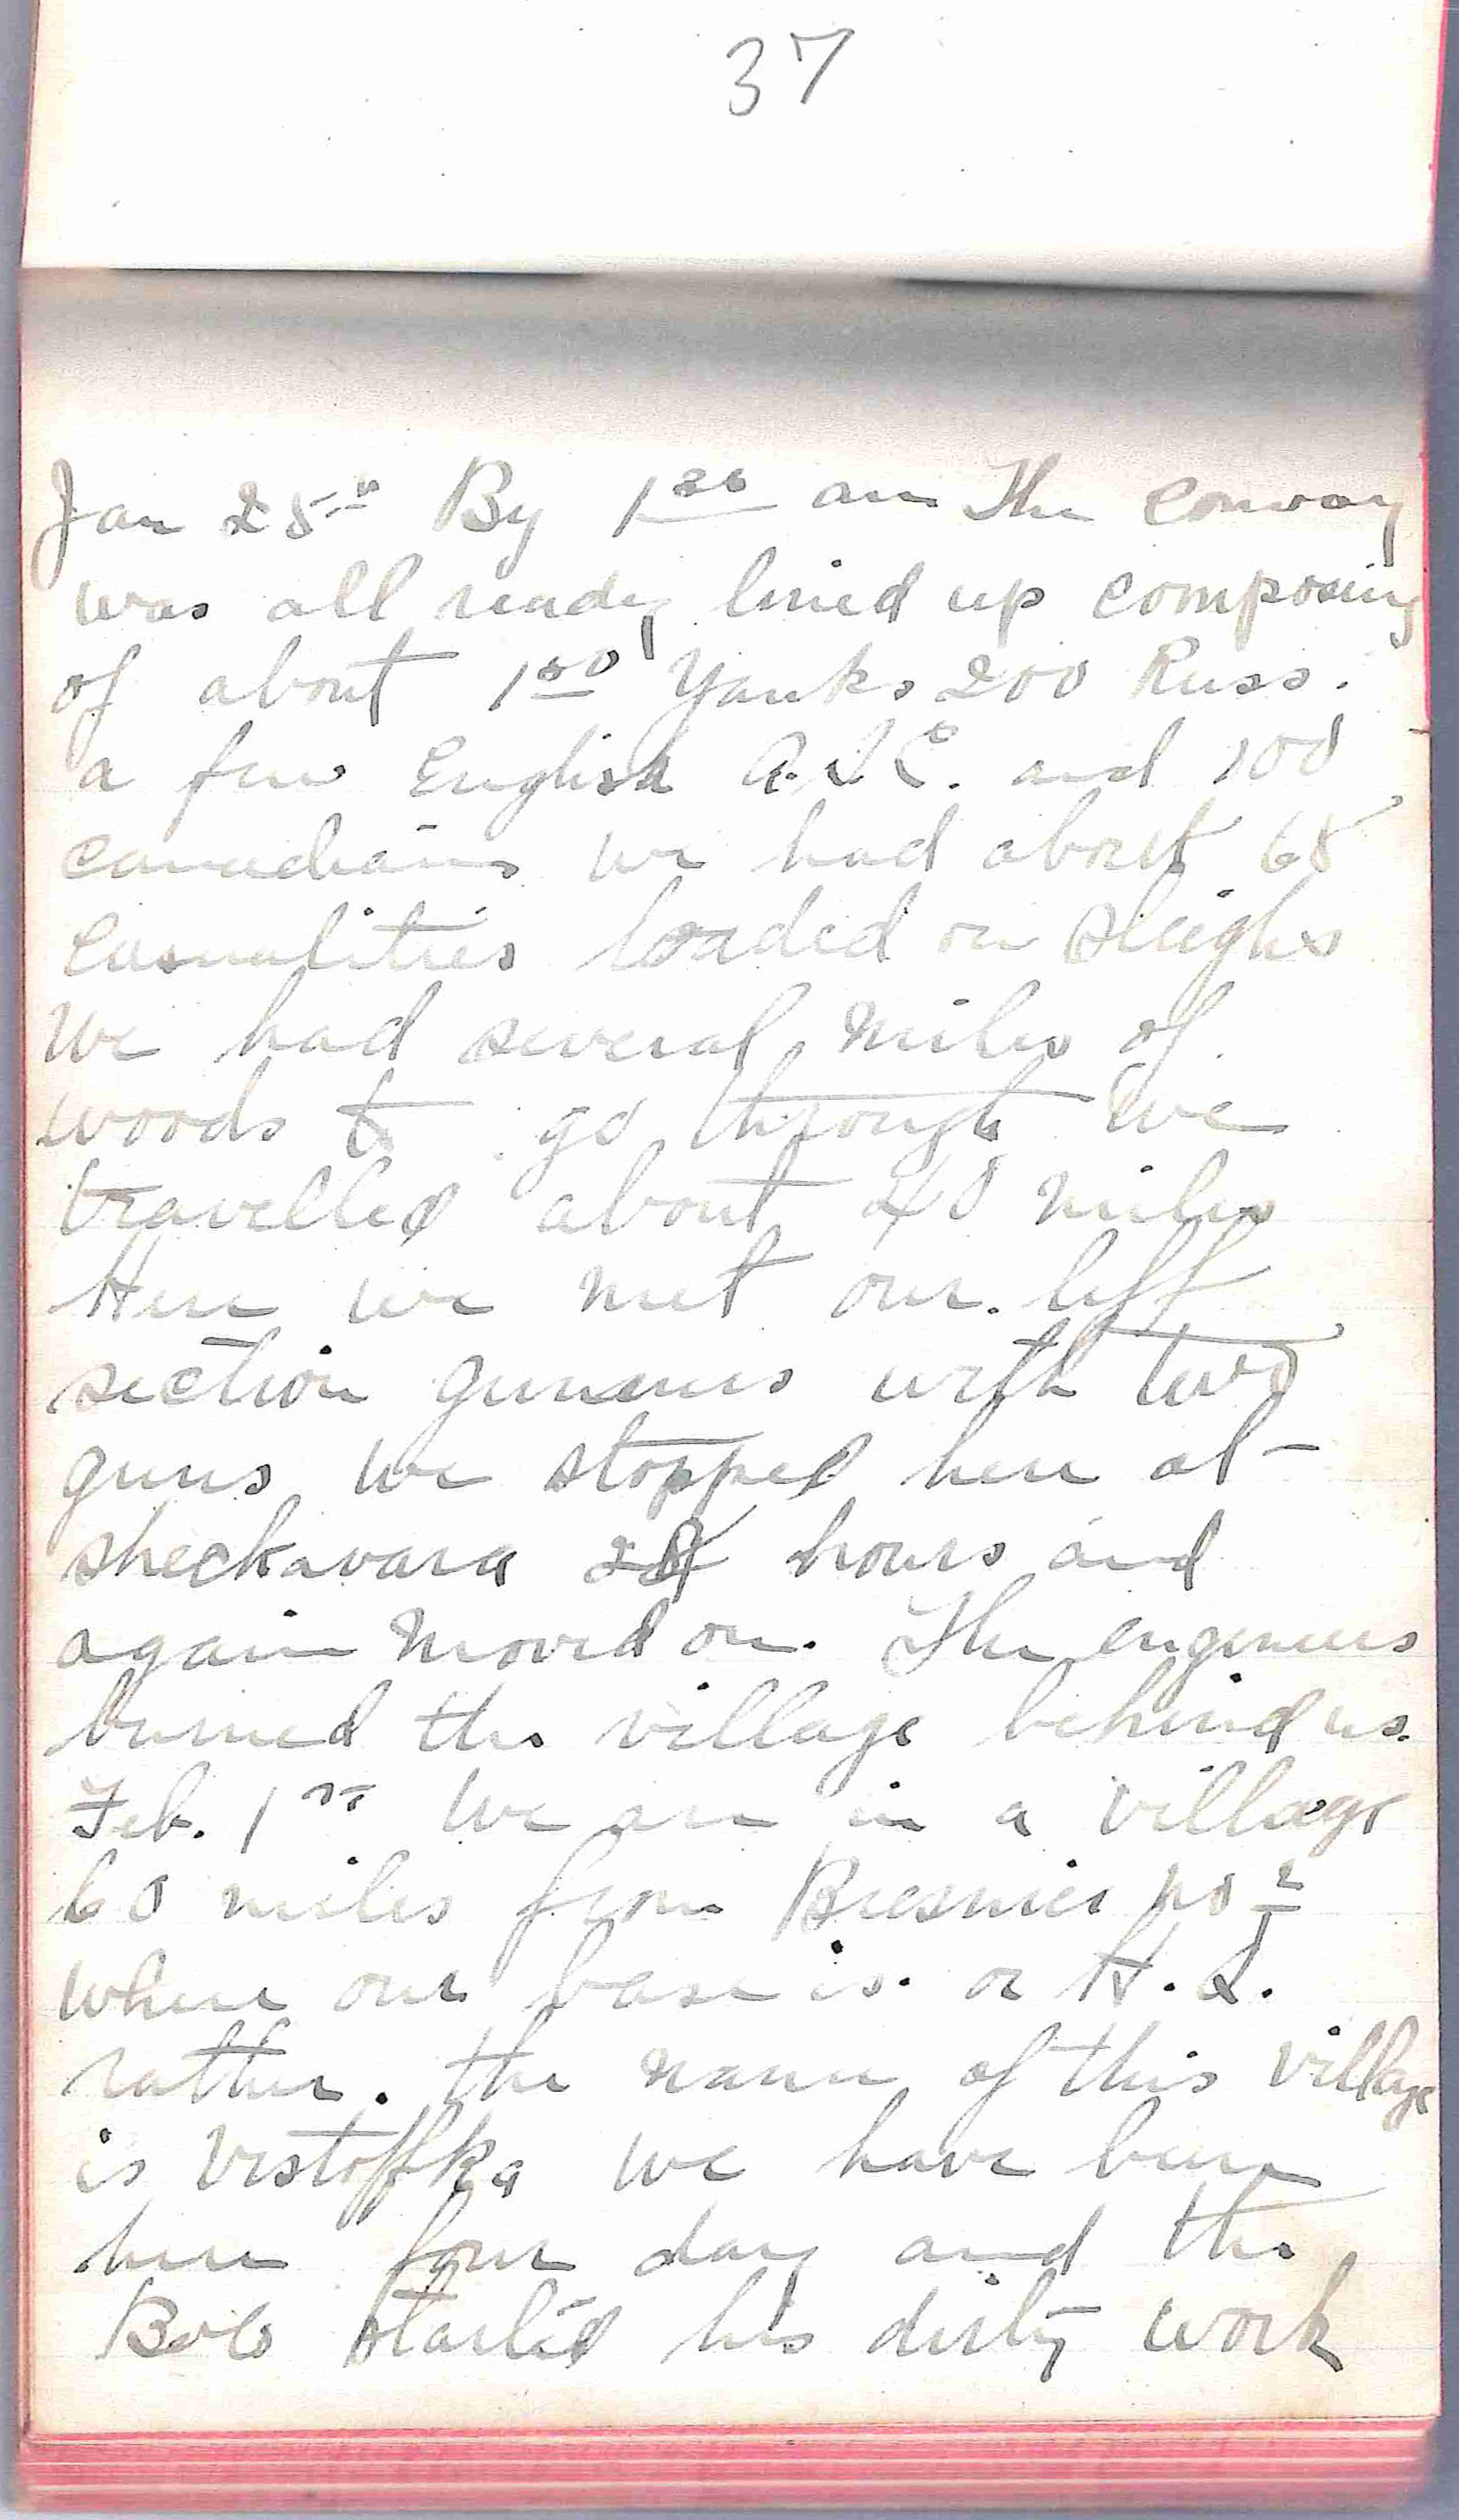 37
Jan 25th By 1 30 am The convoy
was all ready lined up composing
of about 100 Yanks 200 Russ.
a few English A.S.C. and 100
canadians we had about 68
casualities loaded on sleighs
We had several miles of
woods to go through we
travelled about 40 miles
Here we met our left
section gunners with two
guns we stopped here at
sheckavara 24 hours and
again moved on. The engineers
burned the village behind us.
Feb. 1st We are in a village
60 miles from no 2
where our base is. or H.Q.
rather. the name of this village
is Vistoffka we have been
here four day and the
Bolo started his dirty work